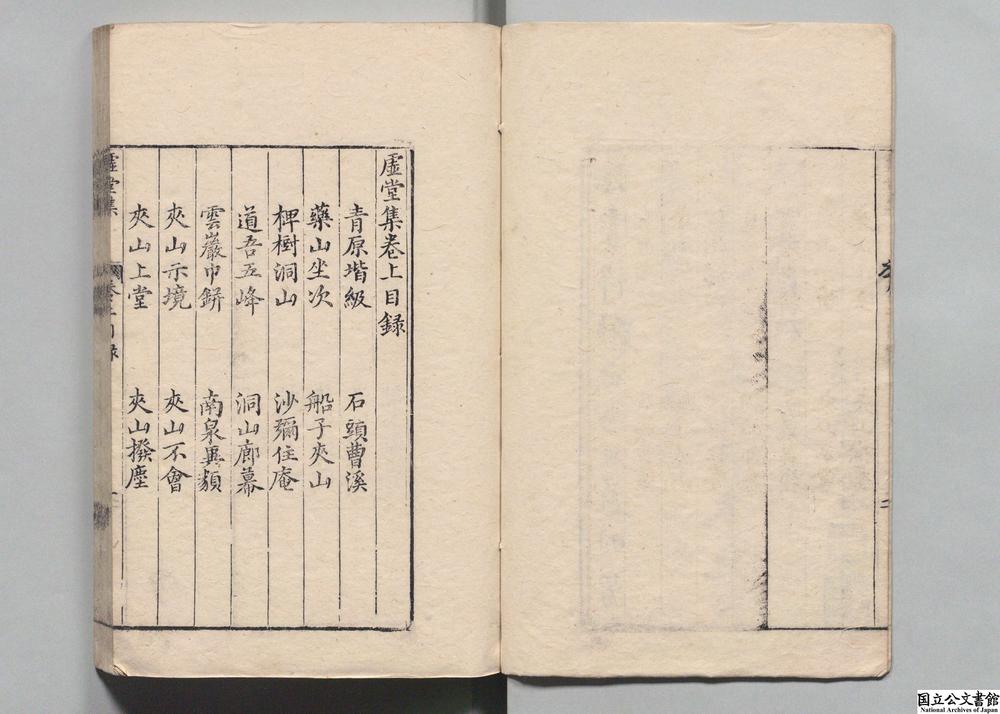 虛堂集卷上目録
青原堦級　石頭曹溪
藥山坐次　船子夾山
椑樹洞山　沙彌住庵
道吾五峰　洞山廊幕
雲巖巾缾　南泉異類
夾山示境　夾山不會
夾山上堂　夾山撥塵
虛堂集
国立公文書館
National Archives of Japan